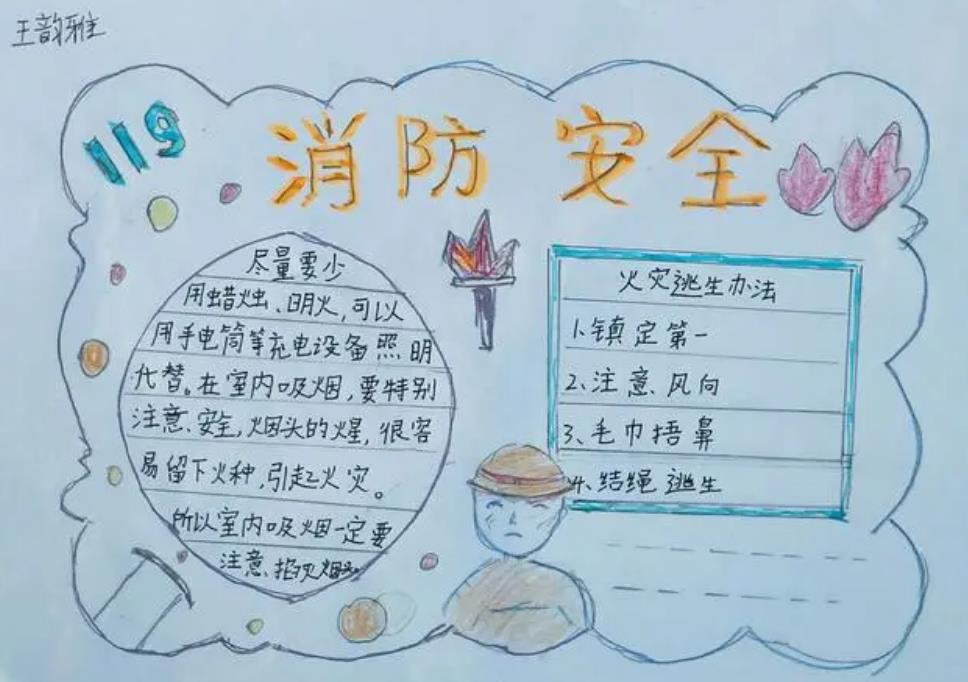 王韵雅
119
消防安全
尽量要少
用蜡烛、明火,可以
用手电筒等充电设备照明
代替。在室内吸烟,要特别
注意、安全,烟头的火星,很容
易留下火种,引起火灾。
所以室内吸烟一定要
注意、掐灭烟头
火灾逃生办法
1、镇定第一
2、注意风向
3、毛巾捂鼻
4、结绳逃生